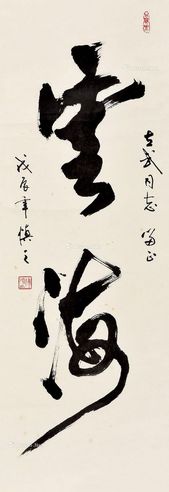 雲海
志武同志 留正
戊辰年 慎之